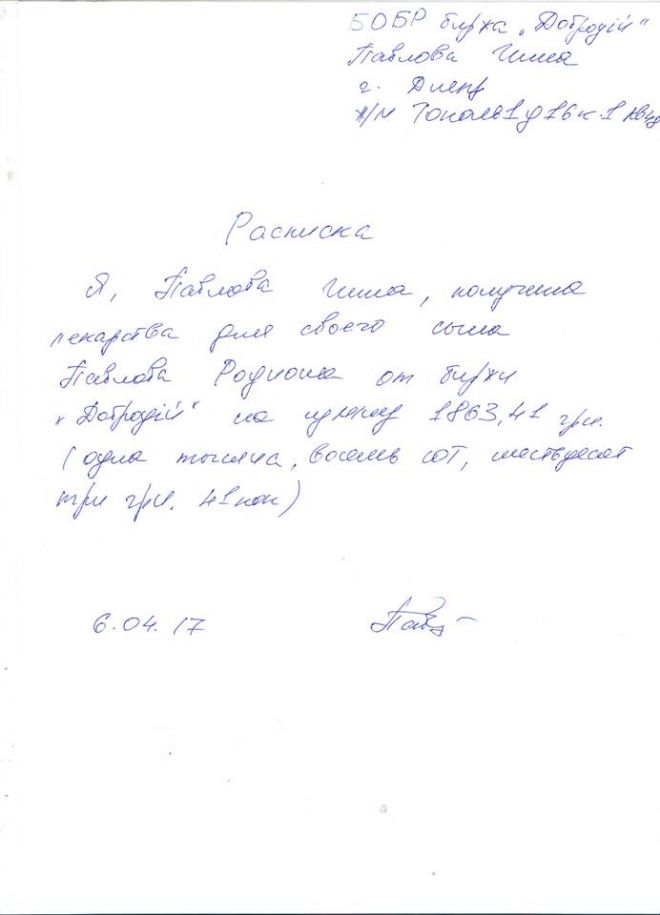 БОБР биржа „Добродій“
Павлова Инна
г. Днепр
ж/м Тополь 1 д 16 к 1
Расписка
Я, Павлова Инна, получила
лекарства для своего сына
Павлова Родиона от биржи
„Добродій“ на сумму 1863,41 грн.
(одна тысяча, восемь сот, шестьдесят
три грн. 41 коп)
6.04.17